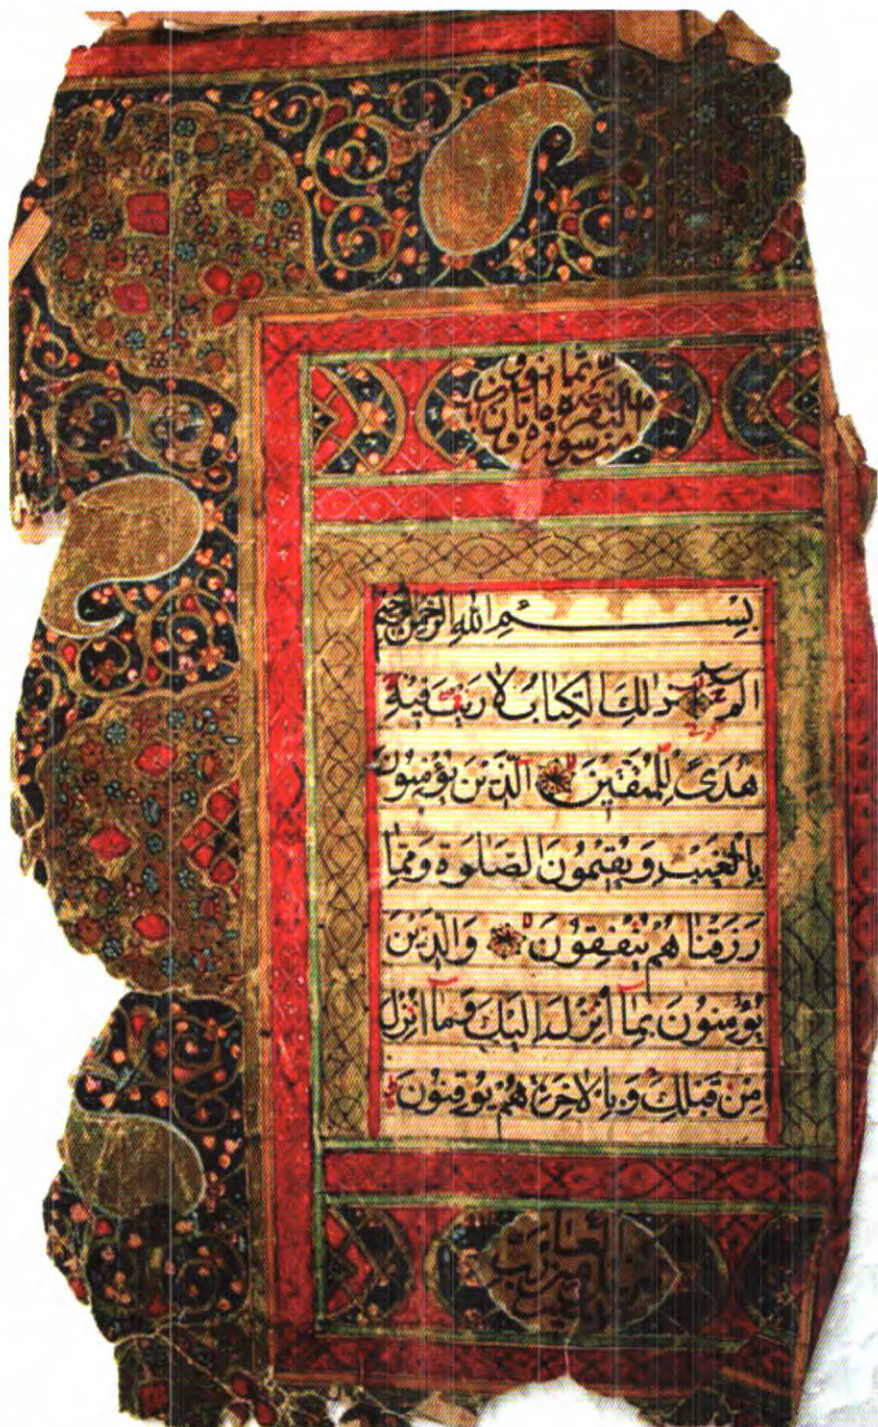 سورة البقرة مائتان
وست وثمانون
بِسْمِ اللهِ الرَّحْمٰنِ الرَّحِيمِ
الم ذٰلِكَ الْكِتَابُ لَا رَيْبَ فِيهِ
هُدًى لِلْمُتَّقِينَ الَّذِينَ يُؤْمِنُونَ
بِالْغَيْبِ وَيُقِيمُونَ الصَّلٰوةَ وَمِمَّا
رَزَقْنَاهُمْ يُنْفِقُونَ وَالَّذِينَ
يُؤْمِنُونَ بِمَا أُنْزِلَ إِلَيْكَ وَمَا أُنْزِلَ
مِنْ قَبْلِكَ وَبِالْاٰخِرَةِ هُمْ يُوقِنُونَ